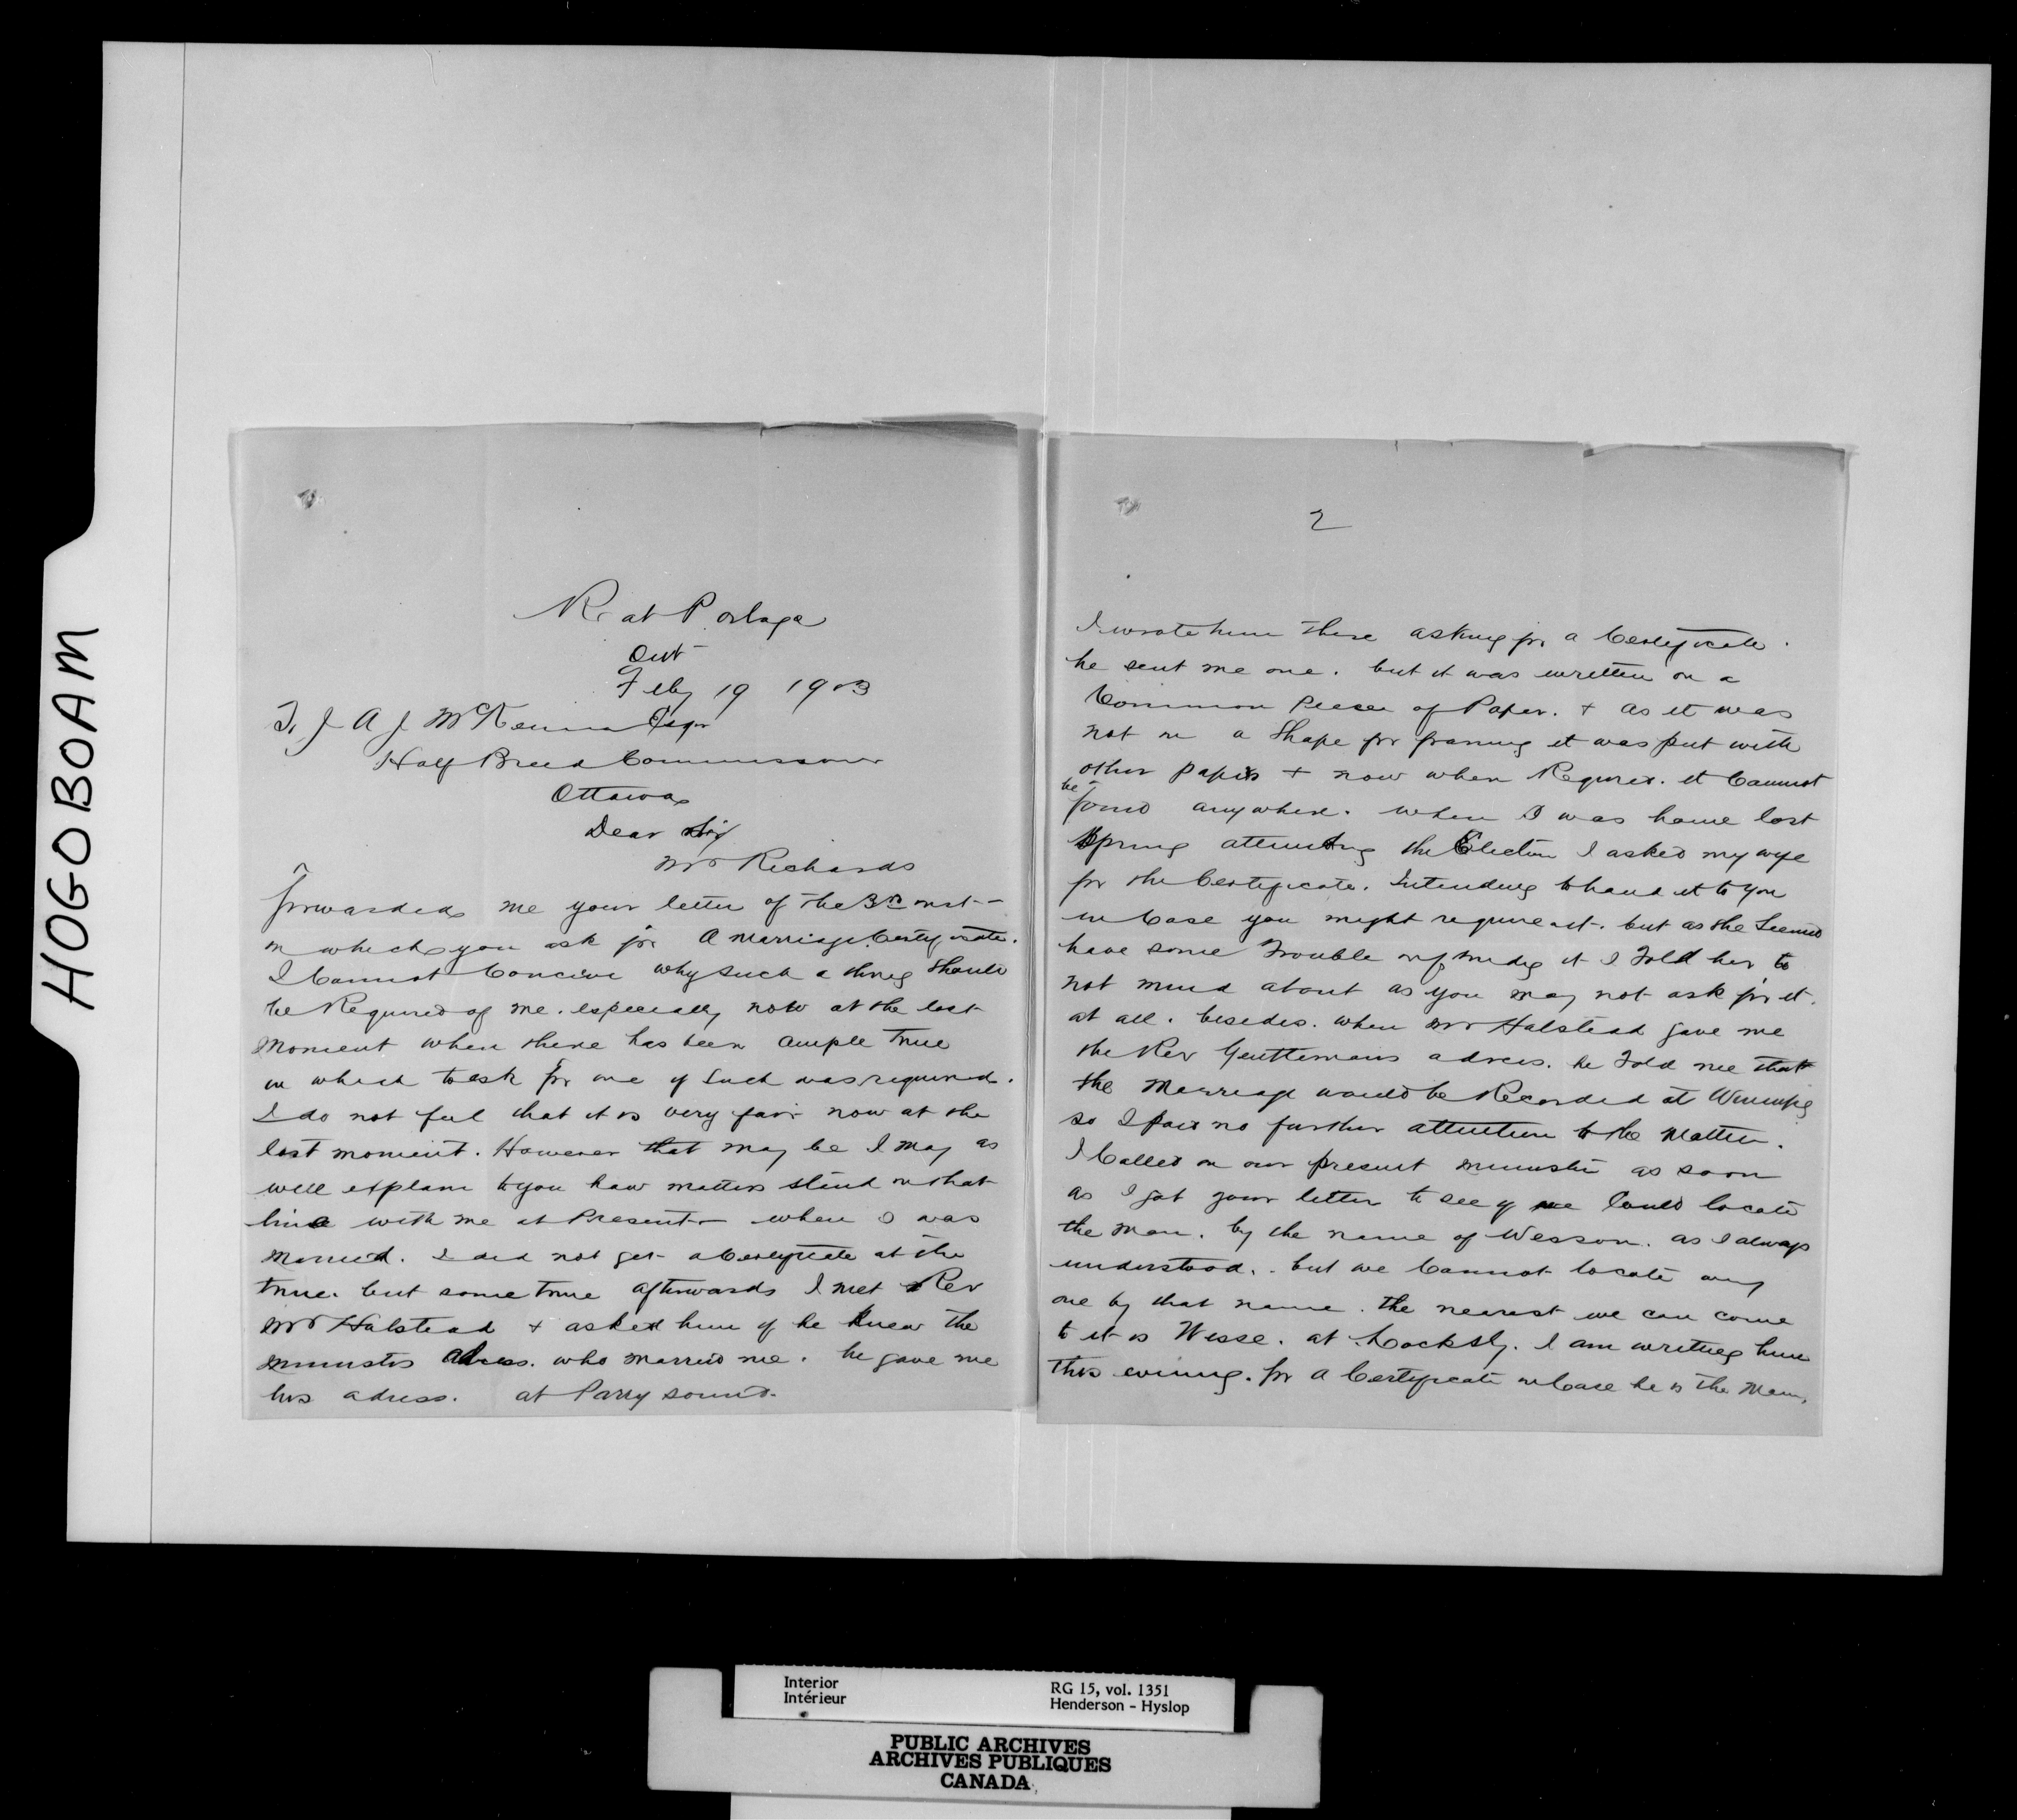 HOGOBOAM
Rat Portage
Ont
Feby 19 1903
To J A J McKenna Esqr
Half Breed Commissioner
Ottawa
Dear Sir
Mr Richards
forwarded me your letter of the 3rd inst -
in which you ask for a marriage Certificate.
I Cannot Conceive why such a thing should
be Required of me. especially now at the last
moment when there has been ample time
in which to ask for one if such was required.
I do not feel that it is very fair now at the
last moment. However that may be I may as
well explain to you how matters stand in that
line with me at Present - when I was
married. I did not get a Certificate at the
time. but some time afterwards I met Rev
Mr Halstead + asked him if he knew the
ministers adress. who married me. he gave me
his adress. at Parry sound.
2
I wrote him there asking for a Certificate.
he sent me one. but it was written on a
Common Peice of Paper. + as it was
not in a shape for framing it was put with
other papers + now when Required. it Cannot
be found anywhere. when I was home last
spring attending the Election I asked my wife
for the Certificate. Intending to hand it to you
in Case you might require it. but as she seemed
have some Trouble in finding it I Told her to
not mind about as you may not ask for it.
at all. besides. when Mr Halstead gave me
the Rev Genttemans adress. he Told me that
the Marriage would be Recorded at Winnipeg
so I paid no further attention to the matter.
I Called on our present minister as soon
as I got your letter to see if we Could locate
the man. by the name of Wesson. as I always
understood. but we Cannot locate any
one by that name. the nearest we can come
to it is Wesse. at Locksly. I am writing him
this evening. for a Certificate in Case he is the Man.
Interior
Intérieur
RG 15, vol. 1351
Henderson - Hyslop
PUBLIC ARCHIVES
ARCHIVES PUBLIQUES
CANADA